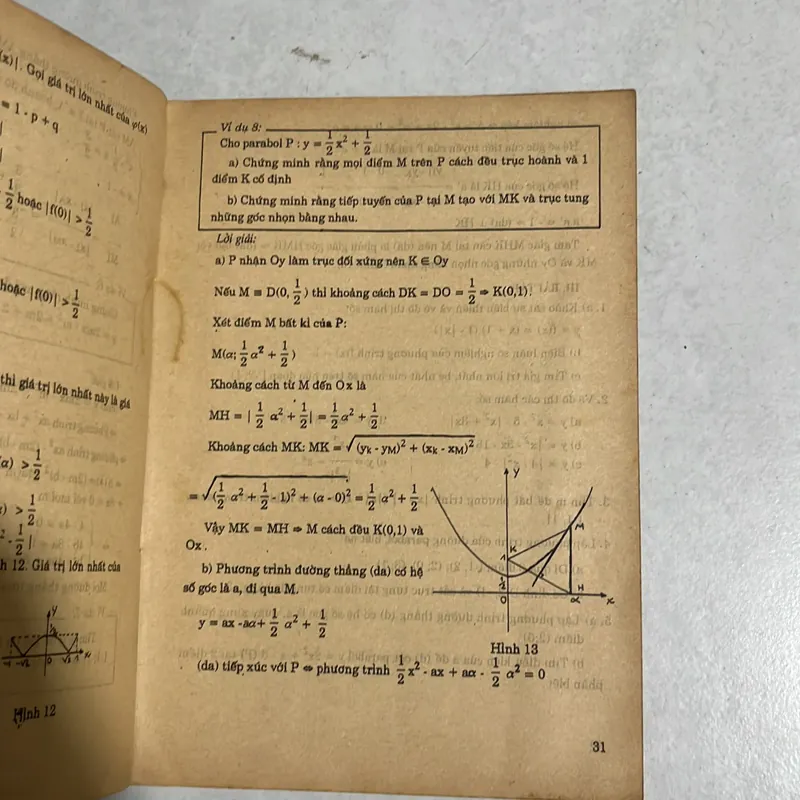 (x)|. Gọi giá trị lớn nhất của φ(x)
= 1 - p + q
1/2 hoặc |f(0)| > 1/2
hoặc |f(0)| > 1/2
thì giá trị lớn nhất này là giá
(α) > 1/2
> 1/2
- 1/2 |
h 12. Giá trị lớn nhất của
y
-1 -√2 0 √2 1 x
Hình 12
Ví dụ 8:
Cho parabol P : y = 1/2 x² + 1/2
a) Chứng minh rằng mọi điểm M trên P cách đều trục hoành và 1
điểm K cố định
b) Chứng minh rằng tiếp tuyến của P tại M tạo với MK và trục tung
những góc nhọn bằng nhau.
Lời giải:
a) P nhận Oy làm trục đối xứng nên K ∈ Oy
Nếu M ≡ D(0, 1/2) thì khoảng cách DK = DO = 1/2 ⇒ K(0,1).
Xét điểm M bất kì của P:
M(α; 1/2 α² + 1/2)
Khoảng cách từ M đến Ox là
MH = | 1/2 α² + 1/2 | = 1/2 α² + 1/2
Khoảng cách MK: MK = √(yk - yM)² + (xk - xM)²
= √(1/2 α² + 1/2 - 1)² + (α - 0)² = 1/2 |α|² + 1/2
Vậy MK = MH ⇒ M cách đều K(0,1) và
Ox.
b) Phương trình đường thẳng (da) có hệ
số góc là a, đi qua M.
y = ax - aα + 1/2 α² + 1/2
y
M
K
1
1/2
0
H
α
x
Hình 13
(da) tiếp xúc với P ⇔ phương trình 1/2 x² - ax + aα - 1/2 α² = 0
31